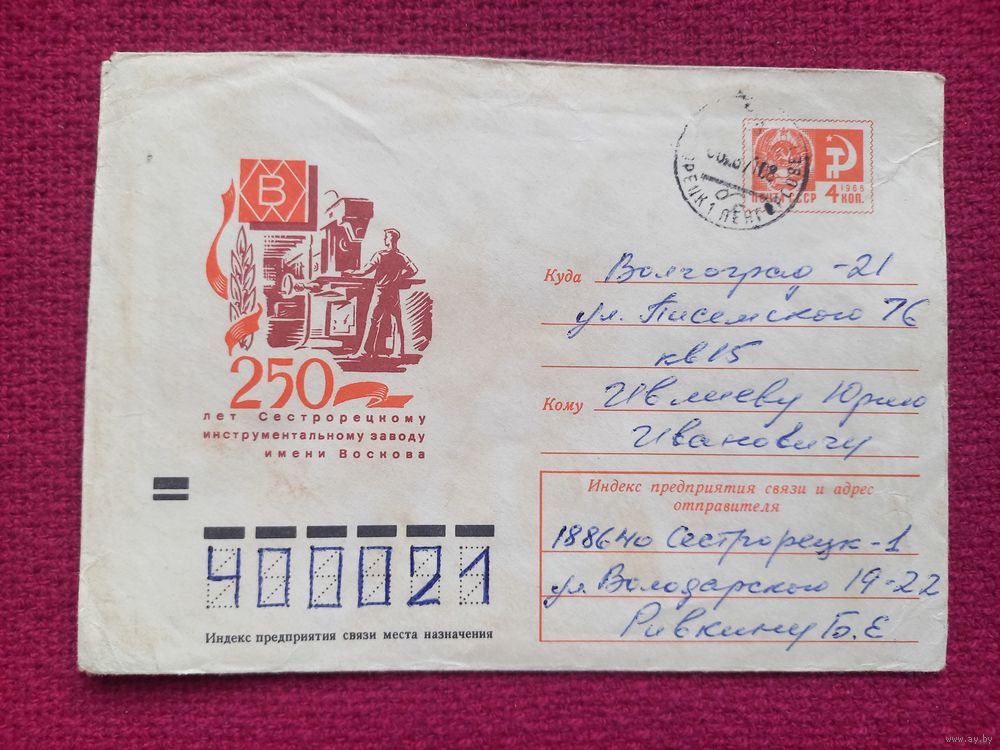 В
250
лет Сестрорецкому
инструментальному заводу
имени Воскова
ПОЧТА СССР
1966
4 КОП.
Куда Волгоград-21
ул. Писемского 76
кв 15
Кому Ивлиеву Юрию
Ивановичу
Индекс предприятия связи и адрес
отправителя
188640 Сестрорецк-1
ул. Володарского 19-22
Ривкину Б.Е.
400021
Индекс предприятия связи места назначения
www.ay.by